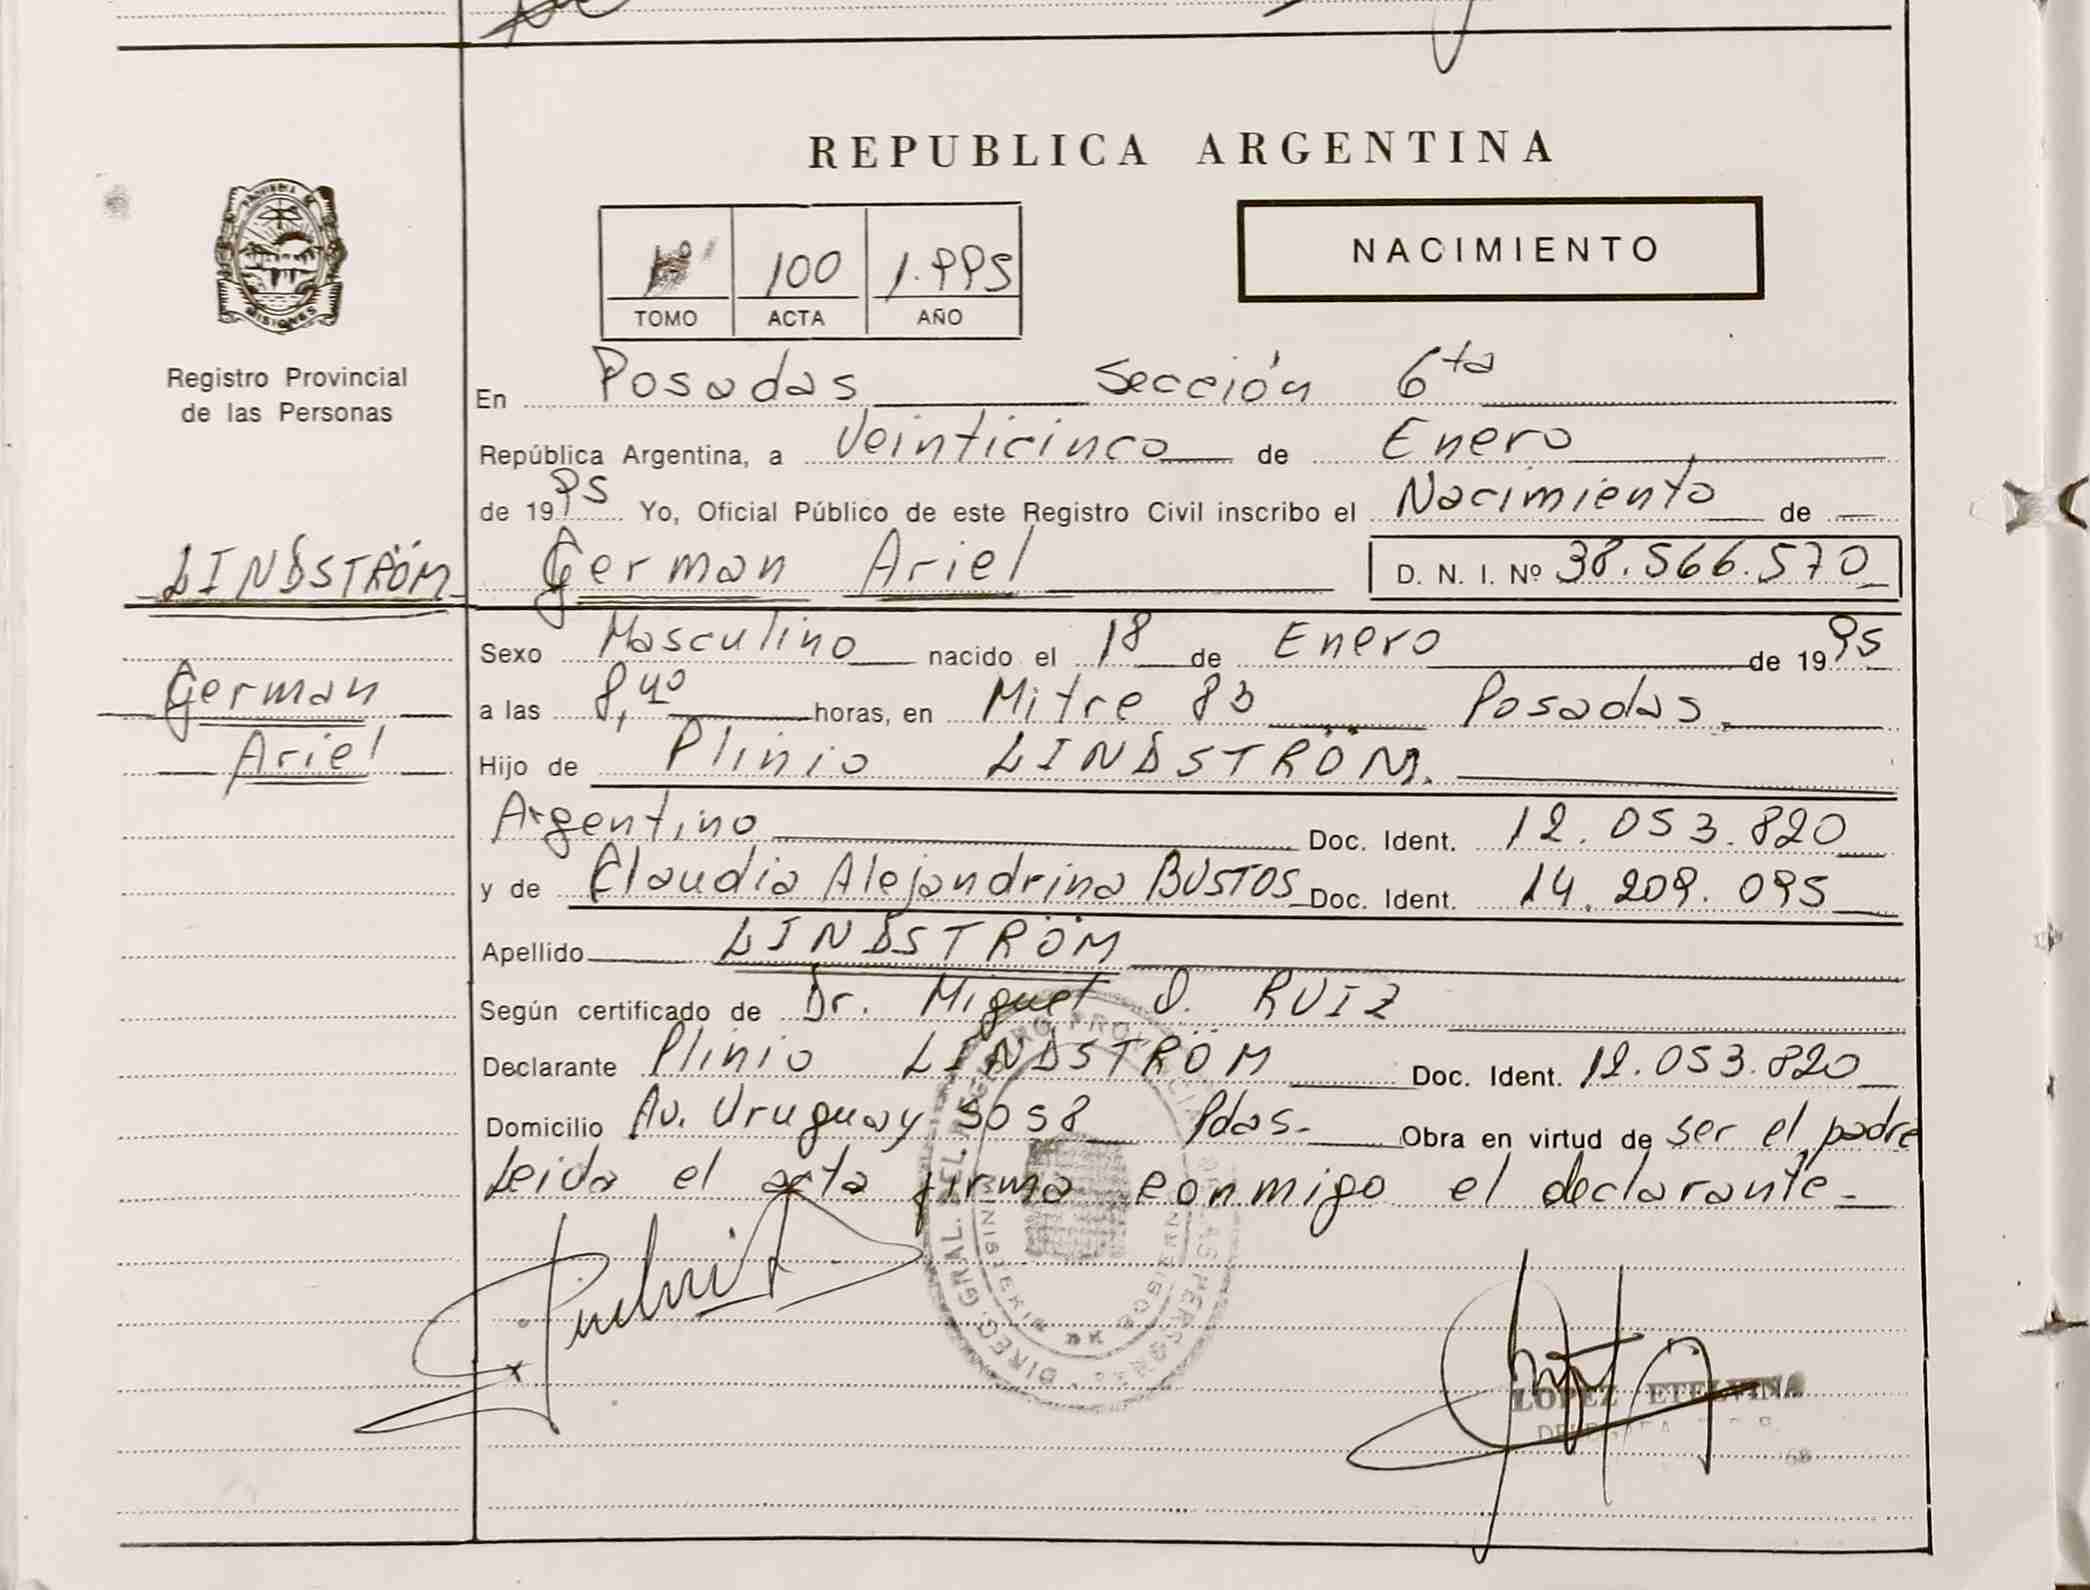 REPUBLICA ARGENTINA
NACIMIENTO
100 1.995
TOMO ACTA AÑO
PROVINCIA
MISIONES
Registro Provincial
de las Personas
En Posadas Sección 6ta
República Argentina, a Veinticinco de Enero
de 1995 Yo, Oficial Público de este Registro Civil inscribo el Nacimiento de
LINDSTRÖM
German Ariel D. N. I. Nº 38.566.570
Sexo Masculino nacido el 18 de Enero de 1995
German
Ariel
a las 8,40 horas, en Mitre 83 Posadas
Hijo de Plinio LINDSTRÖM.
Argentino Doc. Ident. 12.053.820
y de Claudia Alejandrina BUSTOS Doc. Ident. 14.209.095
Apellido LINDSTRÖM
Según certificado de Dr. Miguel O. RUIZ
Declarante Plinio LINDSTRÖM Doc. Ident. 12.053.820
Domicilio Av. Uruguay 5058 Pdas. Obra en virtud de ser el padre
Leida el acta firma conmigo el declarante
DIREC. GRAL. DEL REGISTRO PROVINCIAL DE LAS PERSONAS
MINISTERIO DE GOBIERNO
LOPEZ ETELVINA